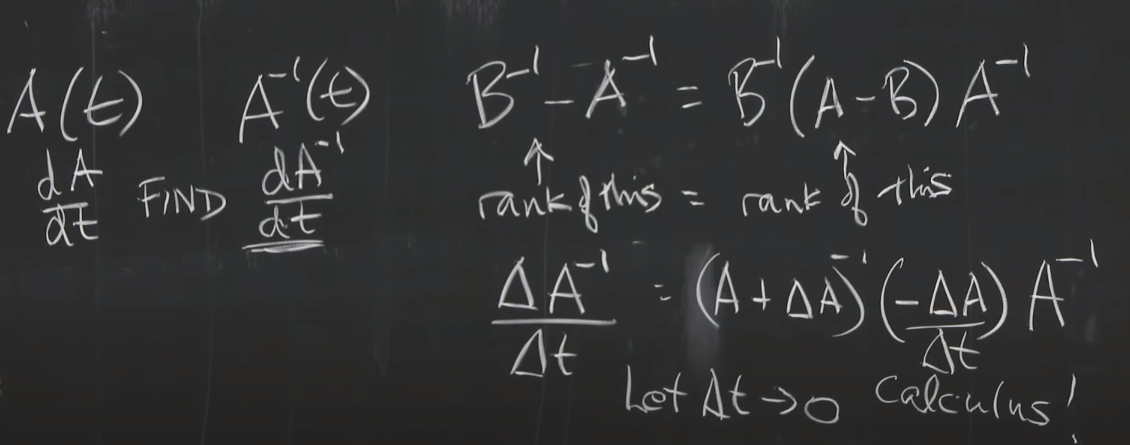 A(t) A⁻¹(t)
dA/dt FIND dA⁻¹/dt
B⁻¹ - A⁻¹ = B⁻¹(A-B)A⁻¹
↑ ↑
rank of this = rank of this
ΔA⁻¹/Δt = (A+ΔA)⁻¹(-ΔA/Δt)A⁻¹
Let Δt→0 Calculus!